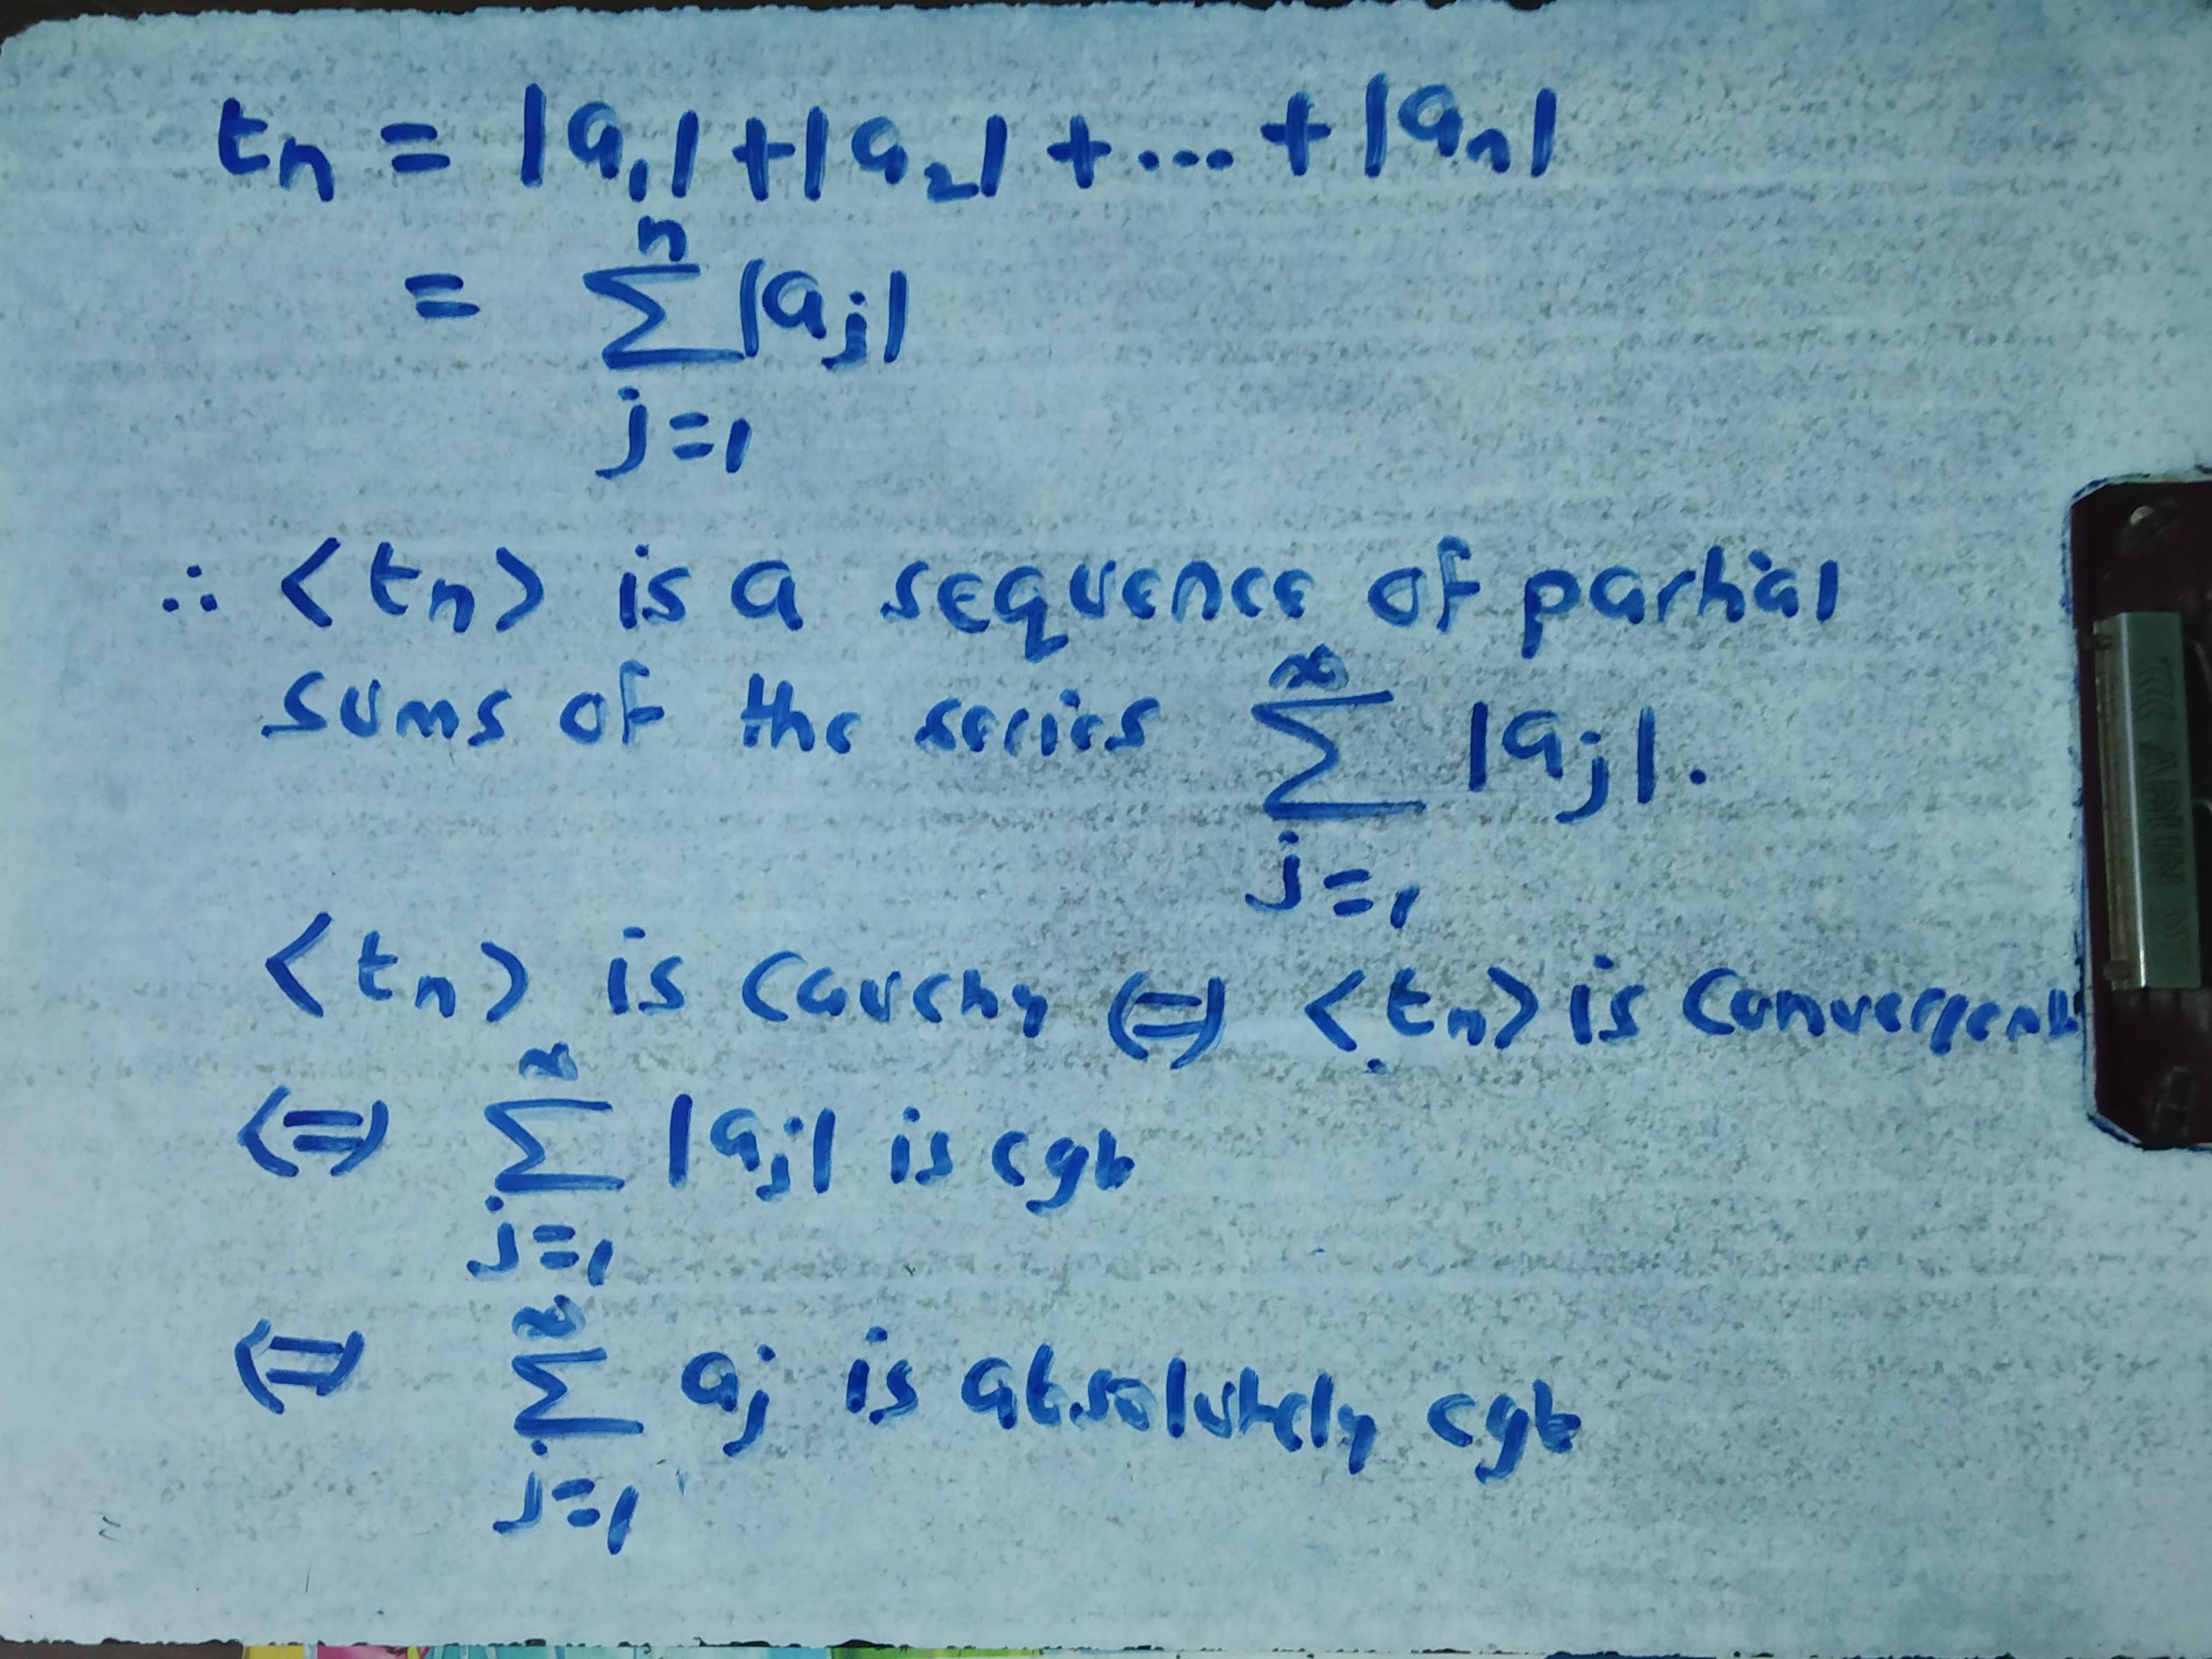 tn = |a1| + |a2| + ... + |an|
= n∑j=1 |aj|
∴ <tn> is a sequence of partial
sums of the series ∞∑j=1 |aj|.
<tn> is Cauchy (=) <tn> is Convergent
(=) ∞∑j=1 |aj| is cgt
(=) ∞∑j=1 aj is absolutely cgt
ARUN